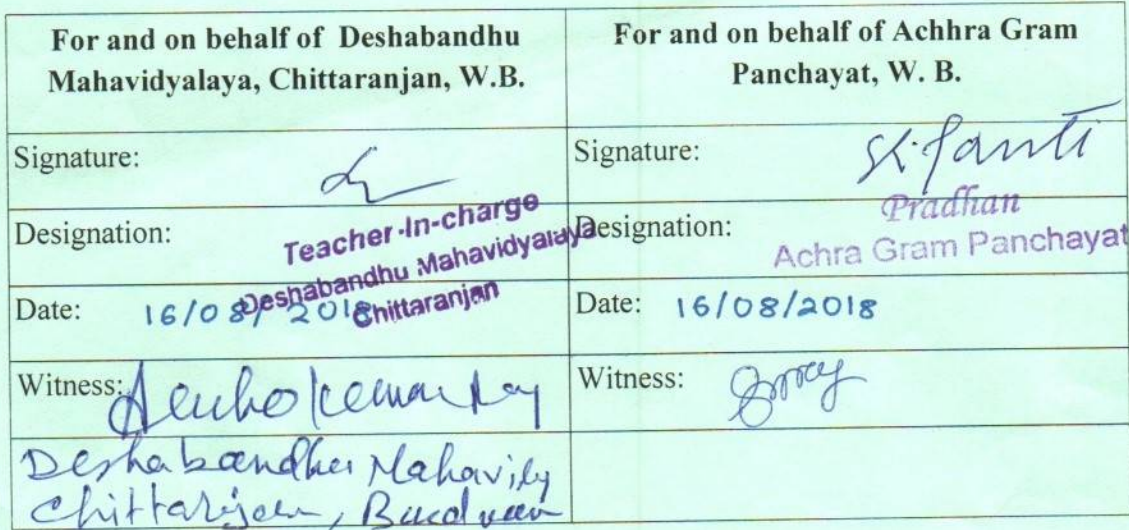 For and on behalf of Deshabandhu
Mahavidyalaya, Chittaranjan, W.B.
For and on behalf of Achhra Gram
Panchayat, W. B.
Signature:
Signature:
Designation:
Teacher-In-charge
Deshabandhu Mahavidyalaya
Chittaranjan
Designation:
Pradhan
Achra Gram Panchayat
Date: 16/08/2018
Date: 16/08/2018
Witness:
Witness:
Chittaranjan